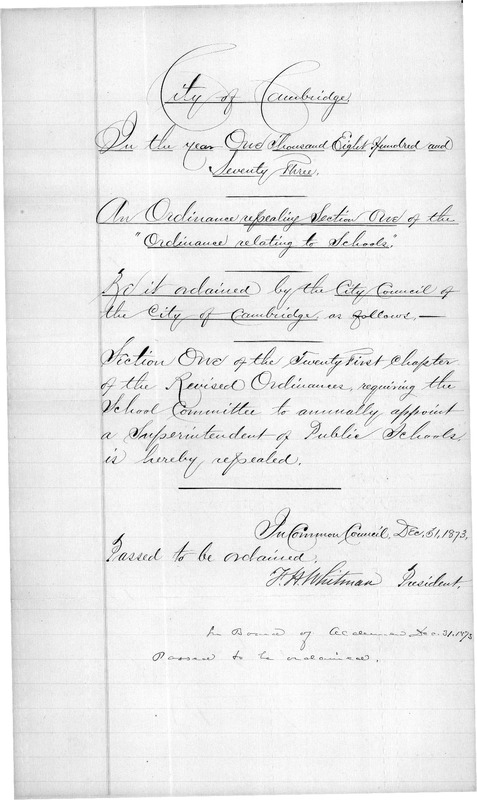 City of Cambridge.
In the year One Thousand Eight Hundred and
Seventy Three.
An Ordinance repealing Section One of the
"Ordinance relating to Schools".
Be it ordained by the City Council of
the City of Cambridge, as follows, —
Section One of the Twenty First Chapter
of the Revised Ordinances, requiring the
School Committee to annually appoint
a Superintendent of Public Schools,
is hereby repealed.
In Common Council, Dec. 31, 1873.
Passed to be ordained.
F. H. Whitman President.
In Board of Aldermen Dec. 31. 1873
Passed to be ordained.